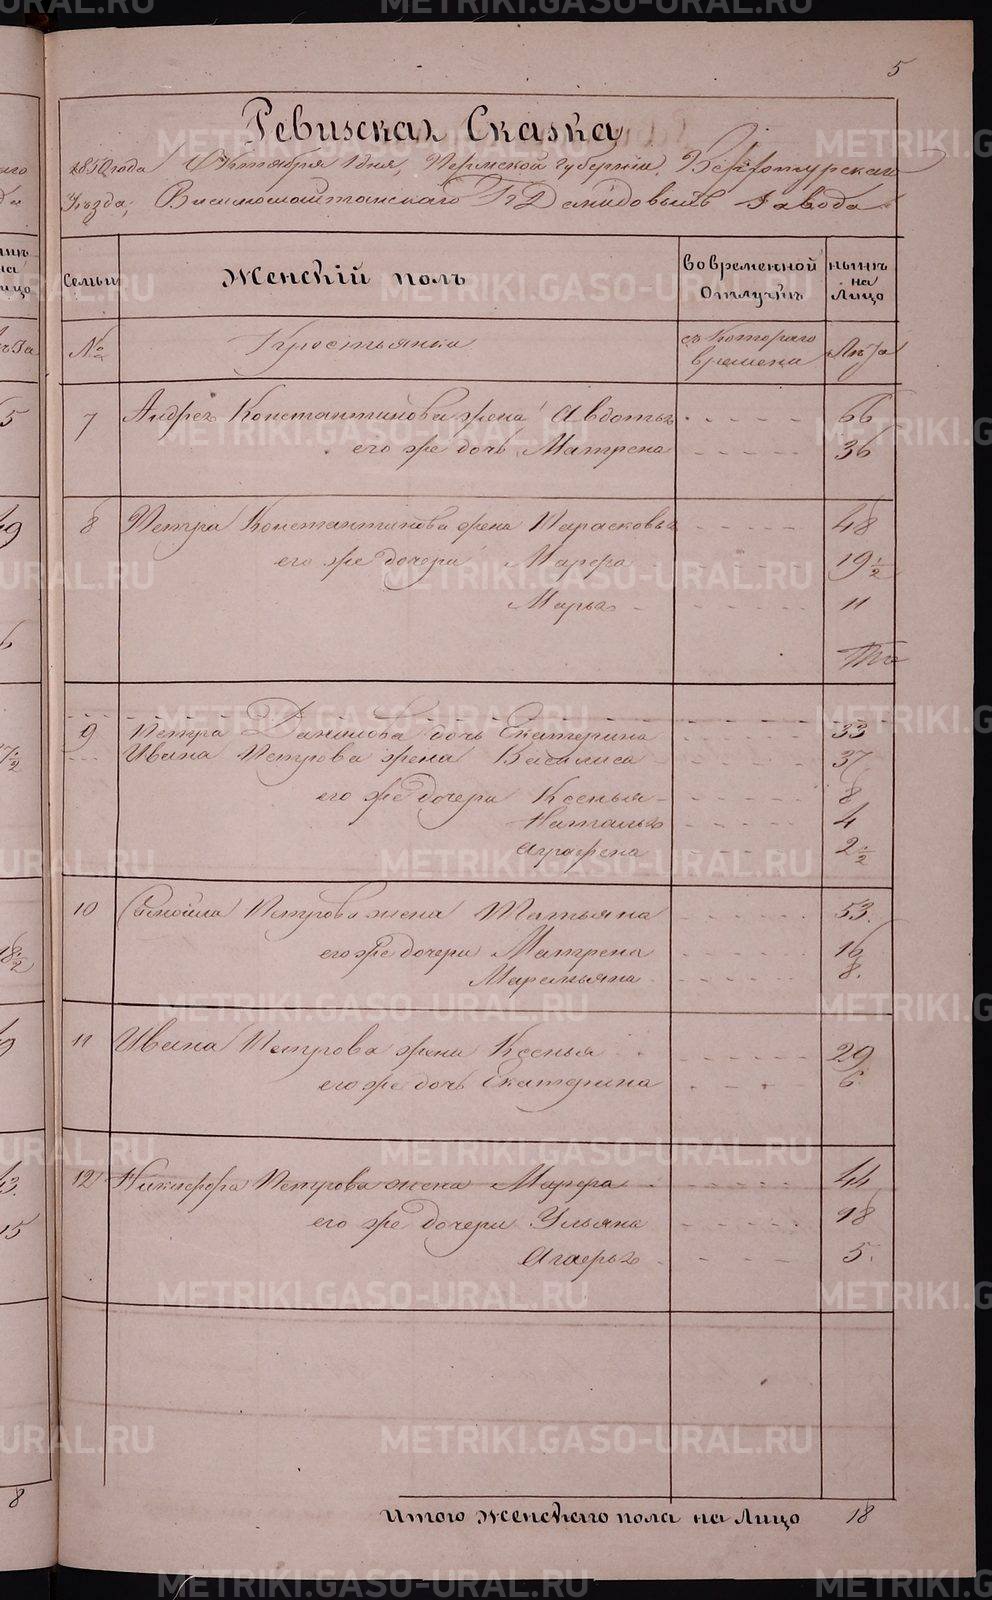 5
Ревизская Сказка
1850 года Октября дня, Пермской губернии, Верхотурскаго
Уѣзда, Висимошайтанскаго Гг Демидовыхъ Завода
Семьи
Женскій полъ
Во временной Отлучкѣ
нынѣ на Лицо
№
Крестьянки
съ Котораго времени
Лѣта
7 Андрея Константинова жена Авдотья 66
его же дочь Матрена 36
8 Петра Константинова жена Парасковья 48
его же дочери Марфа 19 1/2
Марья 11
9 Петра Данилова дочь Екатерина 33
Ивана Петрова жена Василиса 37
его же дочери Ксенья 8
Наталья 4
Аграфена 2 1/2
10 Самойла Петрова жена Татьяна 53.
его же дочери Матрена 16
Маремьяна 8.
11 Ивана Петрова жена Ксенья 29
его же дочь Екатерина 6
12 Никифора Петрова жена Марфа 44
его же дочери Ульяна 18
Агафья 5.
Итого Женскаго пола на Лицо 18
METRIKI.GASO-URAL.RU